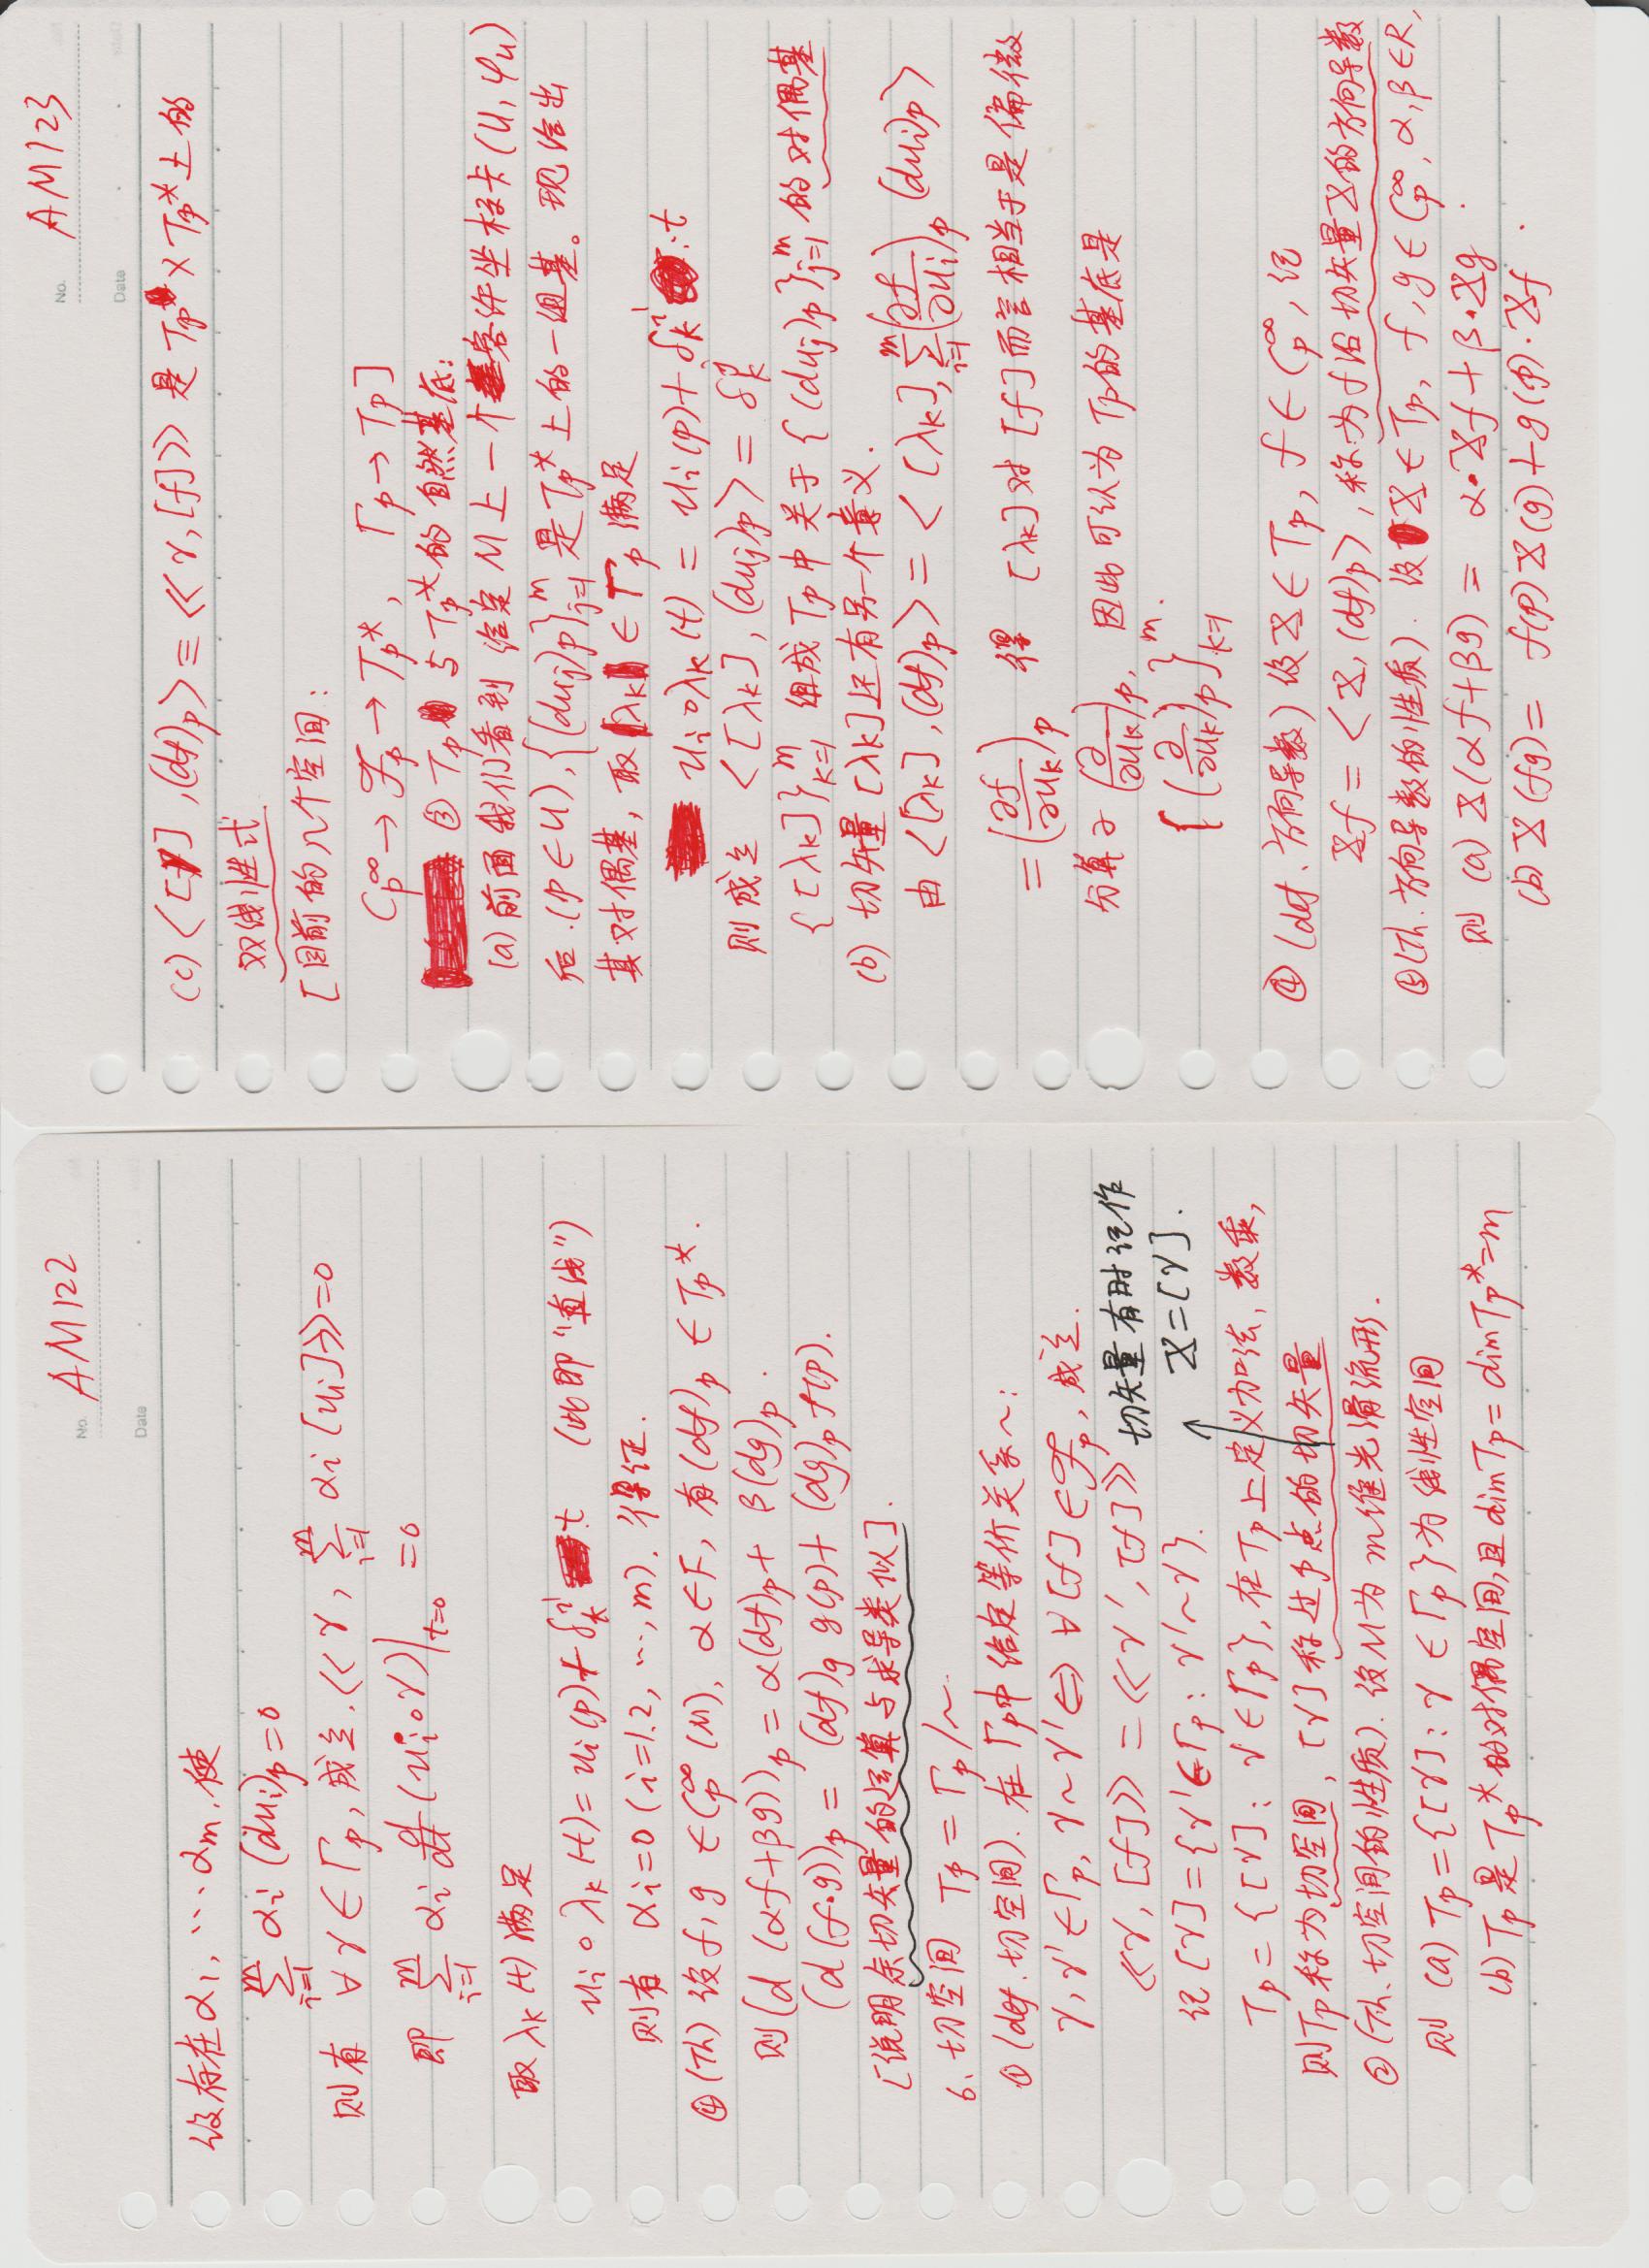 No. AM122
Date
设存在α1, ⋯αm, 使
∑_{i=1}^{m} αi (dui)_p = 0
则有 ∀γ∈Γp, 成立. ≪γ, ∑_{i=1}^{m} αi [ui]≫ = 0
即 ∑_{i=1}^{m} αi d/dt (ui∘γ)|_{t=0} = 0
取λk(t)满足
ui∘λk(t) = ui(p) + δ_k^i t (此即"直线")
则有 αi=0 (i=1.2, ⋯, m). 得证.
④(Th) 设f, g ∈C_p^∞(M), α∈F, 有(df)_p ∈ Tp*.
则(d (αf+βg))_p = α(df)_p + β(dg)_p.
(d(f·g))_p = (df)_g g(p) + (dg)_p f(p).
[说明余切矢量的运算与求导类似].
6. 切空间 Tp = Γp/~.
①(def. 切空间). 在Γp中给定等价关系~:
γ, γ'∈Γp, γ~γ' ⇔ ∀[f]∈ℱp, 成立.
≪γ, [f]≫ = ≪γ', [f]≫
切矢量有时记作
X=[γ].
记[γ]={γ'∈Γp: γ'~γ}.
Tp={[γ]: γ∈Γp}, 在Tp上定义加法, 数乘,
则Tp称为切空间, [γ]称过p点的切矢量
②(Th. 切空间的性质). 设M为m维光滑流形.
则 (a) Tp={[γ]: γ∈Γp}为线性空间
(b) Tp是Tp*的对偶空间,且dimTp = dimTp*=m
No. AM123
Date
(c) ⟨[γ], (df)_p⟩ ≡ ≪γ, [f]≫ 是Tp × Tp*上的
双线性式
[目前的几个空间:
C_p^∞ → ℱp → Tp*, Γp → Tp]
③ Tp 与Tp*的自然基底:
(a) 前面我们看到 给定M上一个容许坐标卡(U, φu)
后. (p∈U), {(duj)_p}_{j=1}^{m} 是Tp*上的一组基。现给出
其对偶基, 取λk ∈ Γp 满足
ui∘λk(t) = ui(p) + δ_k^i t
则成立 ⟨[λk], (duj)_p⟩ = δ_k^j
{[λk]}_{k=1}^{m} 组成Tp中关于{(duj)_p}_{j=1}^{m} 的对偶基
(b) 切矢量[λk]还有另一个意义.
由⟨[λk], (df)_p⟩ = ⟨[λk], ∑_{i=1}^{m} (∂f/∂ui)_p (dui)_p⟩
= (∂f/∂uk)_p 得 [λk]对[f]而言相当于是偏微
分算子 (∂/∂uk)_p, 因此可认为Tp的基底是
{(∂/∂uk)_p}_{k=1}^{m}.
④(def. 方向导数) 设X∈Tp, f∈C_p^∞, 记
Xf = ⟨X, (df)_p⟩, 称为f沿切矢量X的方向导数
⑤(Th. 方向导数的性质). 设X∈Tp, f, g∈C_p^∞, α, β∈R,
则 (a) X(αf+βg) = α·Xf+β·Xg.
(b) X(fg) = f(p)X(g)+g(p)·Xf.